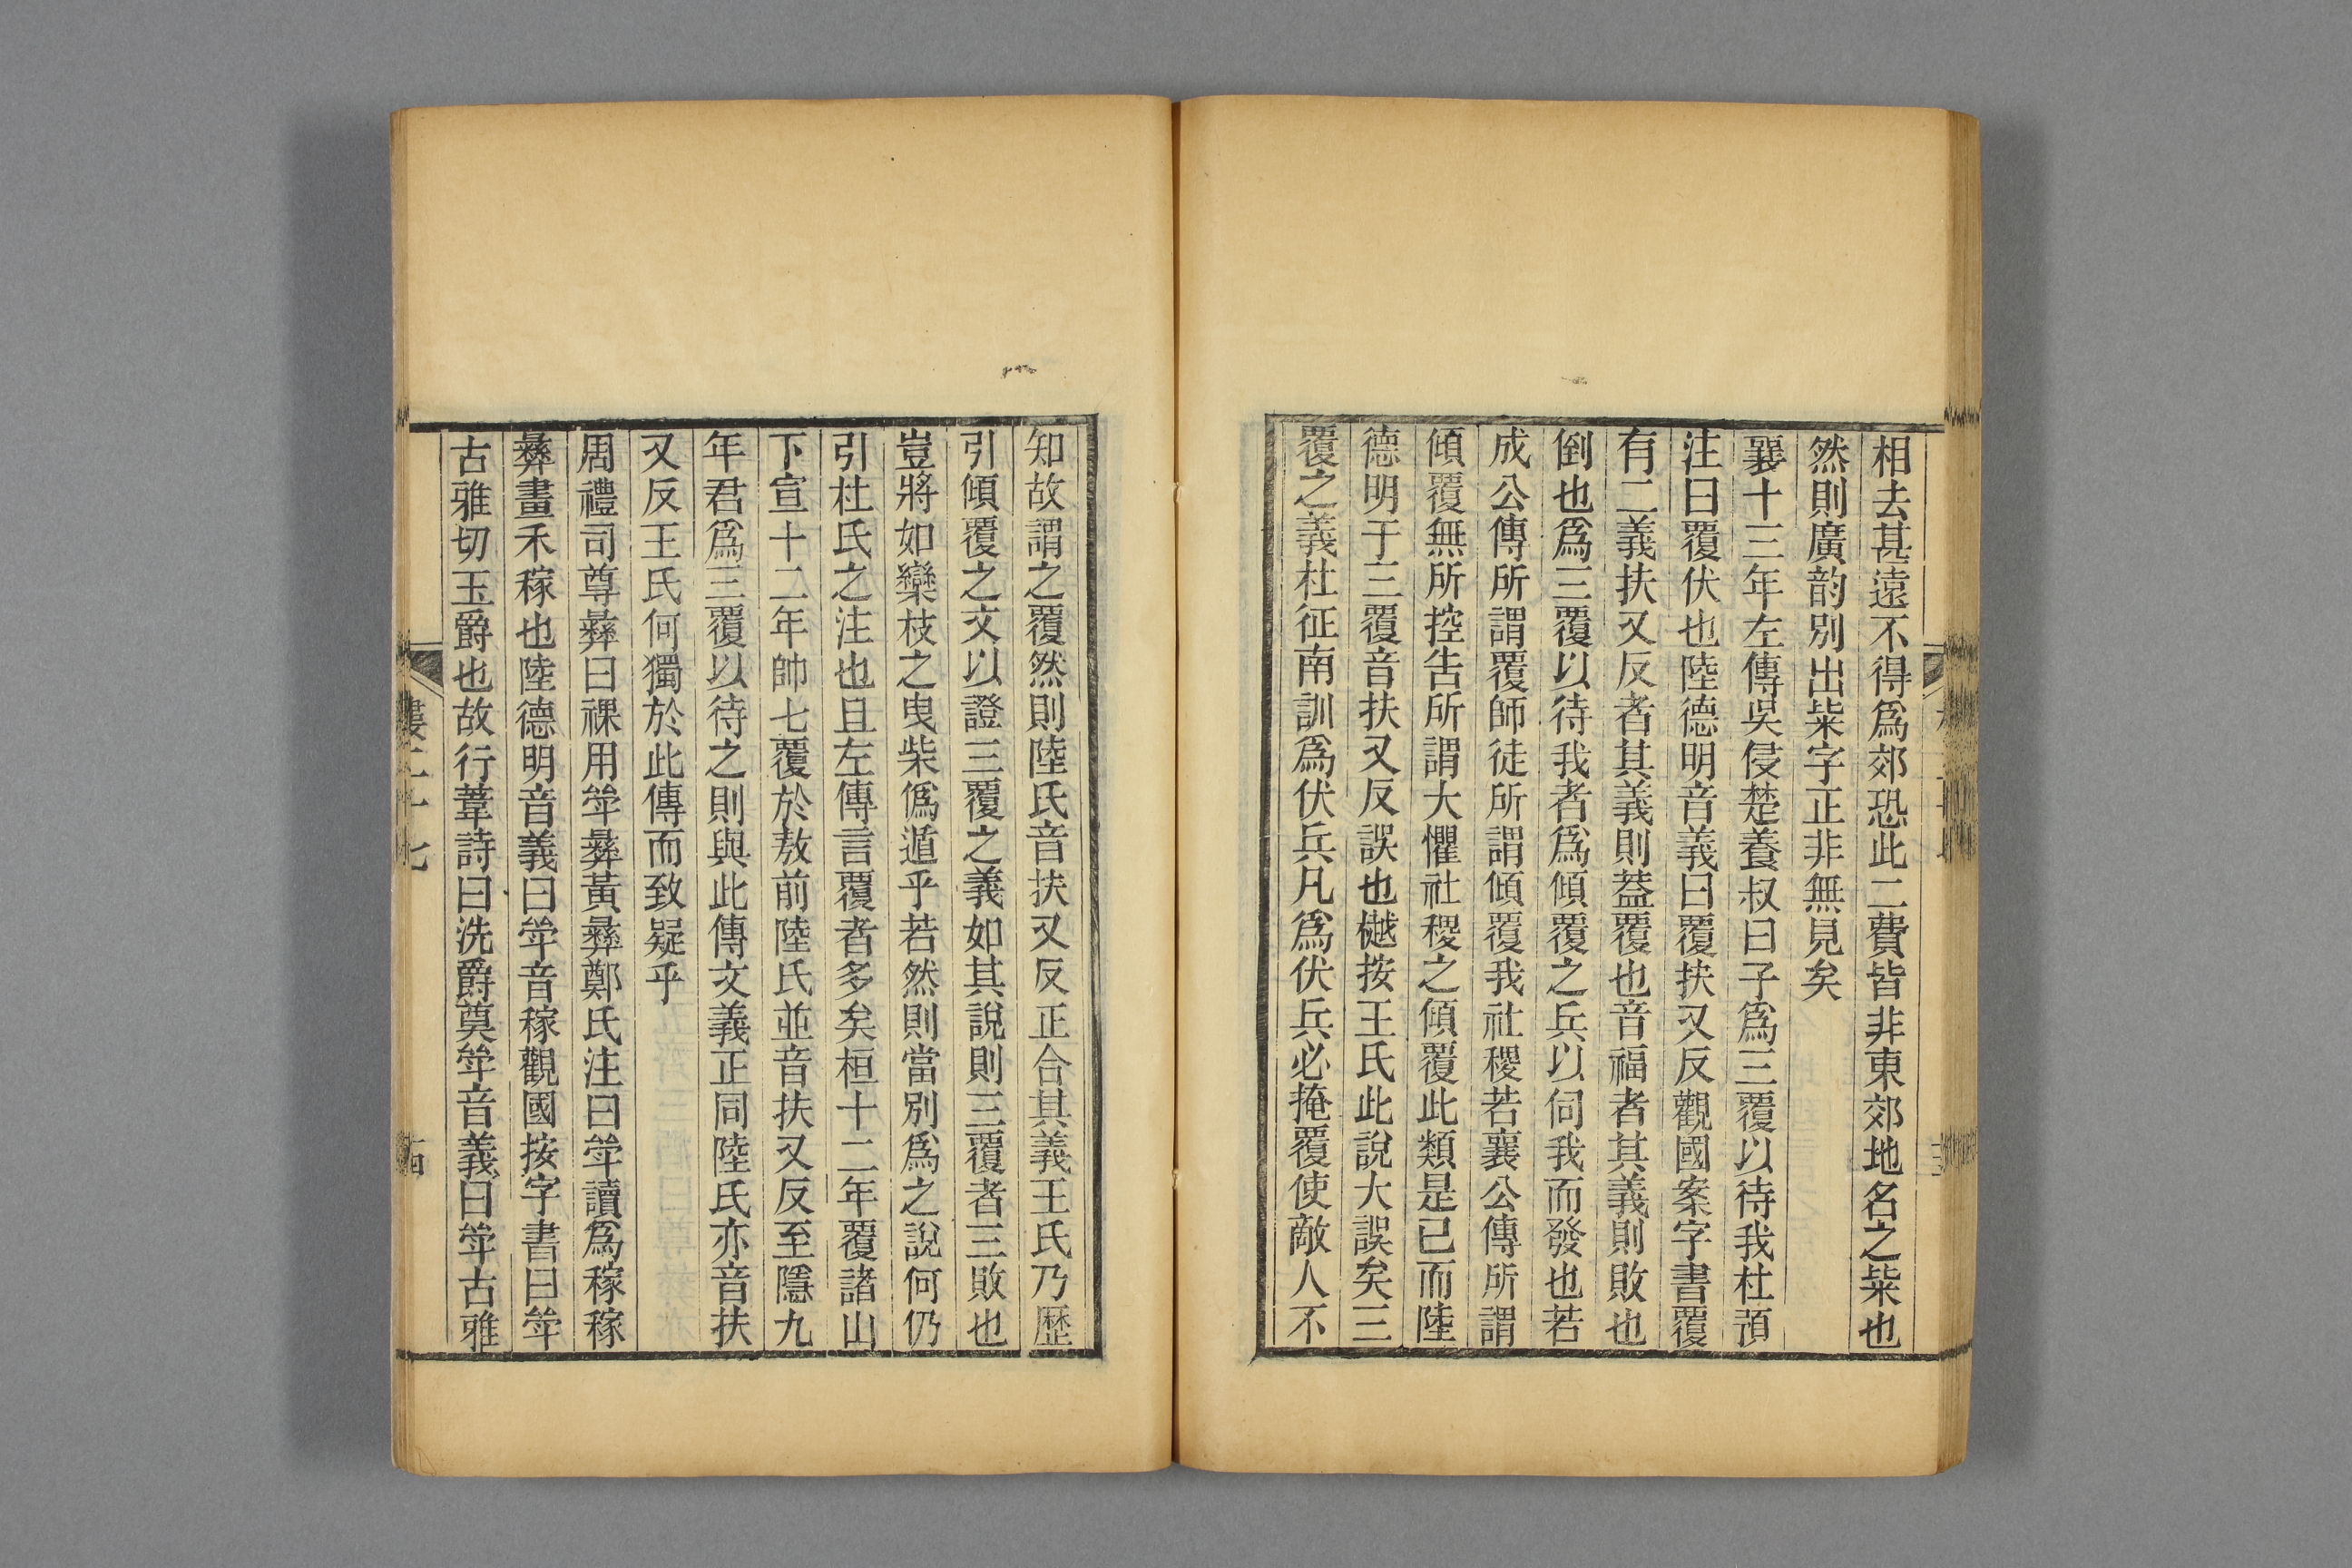 相去甚遠不得爲郊恐此二費皆非東郊地名之粊也
然則廣韵別出粊字正非無見矣
襄十三年左傳吳侵楚養叔曰子爲三覆以待我杜預
注曰覆伏也陸德明音義曰覆扶又反觀國案字書覆
有二義扶又反者其義則葢覆也音福者其義則敗也
倒也爲三覆以待我者爲傾覆之兵以伺我而發也若
成公傳所謂覆師徒所謂傾覆我社稷若襄公傳所謂
傾覆無所控告所謂大懼社稷之傾覆此類是已而陸
德明于三覆音扶又反誤也樾按王氏此說大誤矣三
覆之義杜征南訓爲伏兵凡爲伏兵必掩覆使敵人不
知故謂之覆然則陸氏音扶又反正合其義王氏乃歷
引傾覆之文以證三覆之義如其說則三覆者三敗也
豈將如欒枝之曳柴僞遁乎若然則當別爲之說何仍
引杜氏之注也且左傳言覆者多矣桓十二年覆諸山
下宣十二年帥七覆於敖前陸氏並音扶又反至隱九
年君爲三覆以待之則與此傳文義正同陸氏亦音扶
又反王氏何獨於此傳而致疑乎
周禮司尊彝曰祼用斝彝黃彝鄭氏注曰斝讀爲稼稼
彝畫禾稼也陸德明音義曰斝音稼觀國按字書曰斝
古雅切玉爵也故行葦詩曰洗爵奠斝音義曰斝古雅
樓二十七
十四